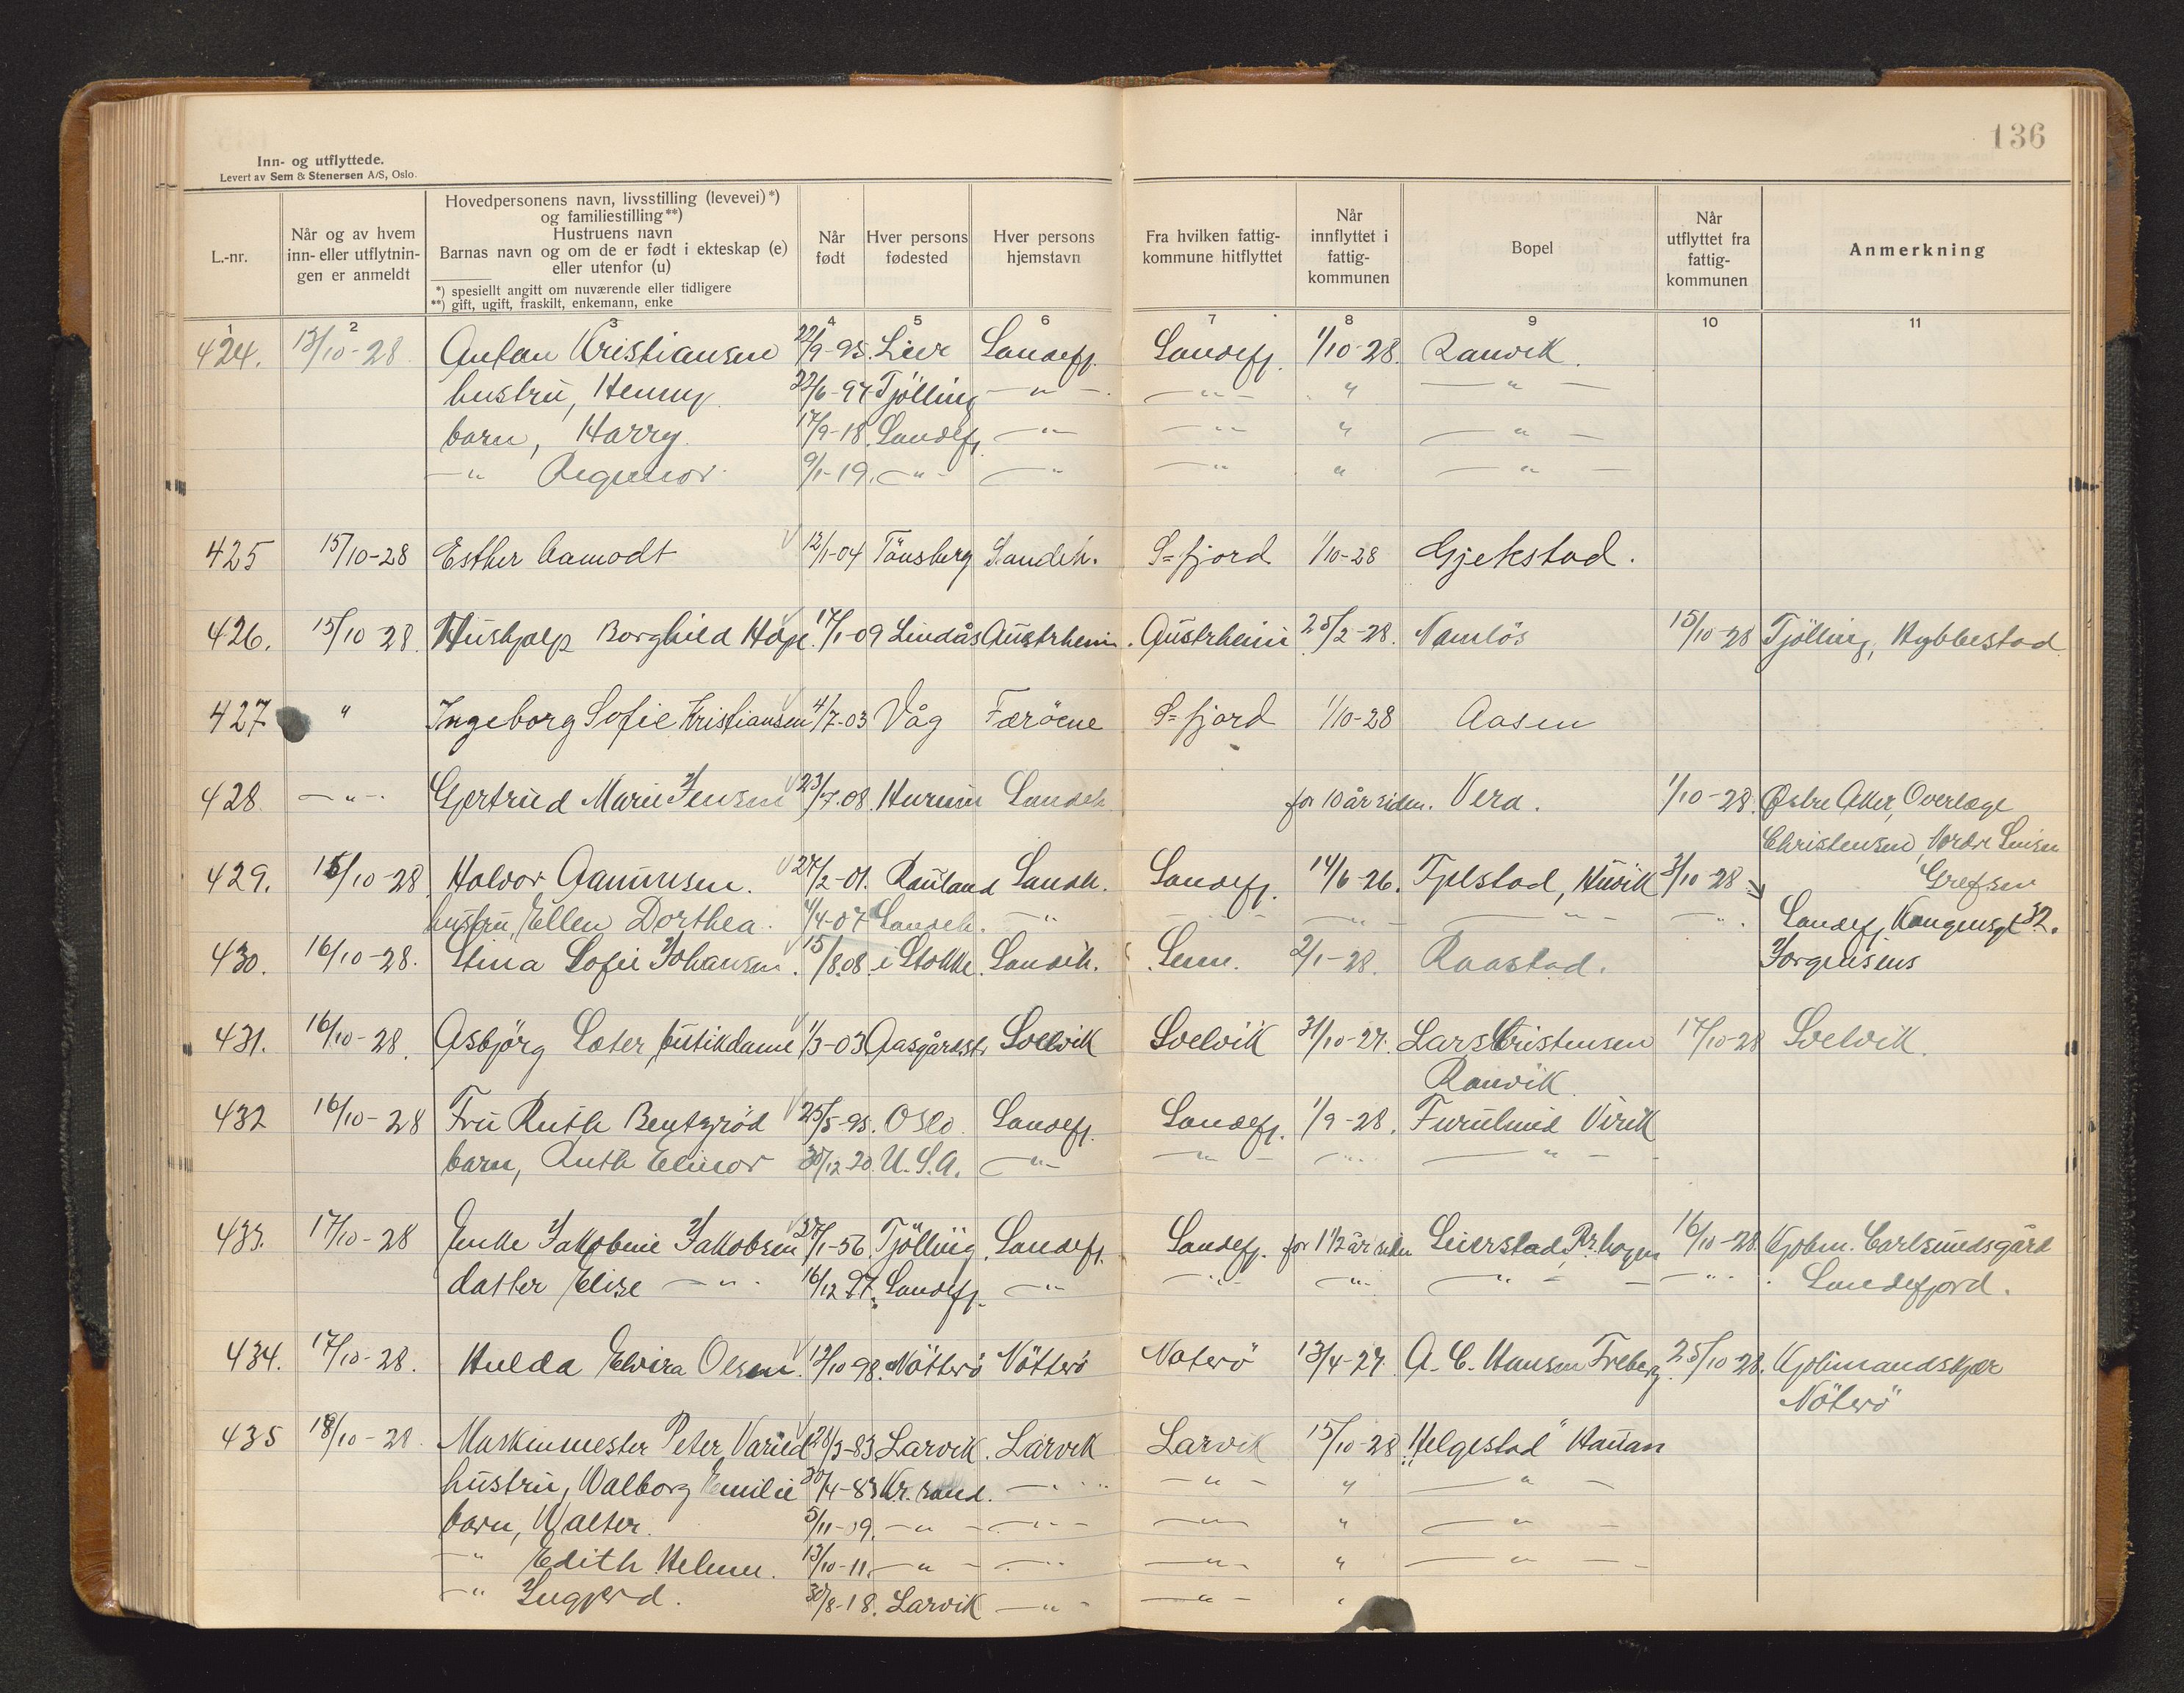 136
Inn- og utflyttede.
Levert av Sem & Stenersen A/S, Oslo.
L.-nr.
Når og av hvem
inn- eller utflytnin-
gen er anmeldt
Hovedpersonens navn, livsstilling (levevei) *)
og familiestilling **)
Hustruens navn
Barnas navn og om de er født i ekteskap (e)
eller utenfor (u)
*) spesielt angitt om nuværende eller tidligere
**) gift, ugift, fraskilt, enkemann, enke
Når
født
Hver persons
fødested
Hver persons
hjemstavn
Fra hvilken fattig-
kommune hitflyttet
Når
innflyttet i
fattig-
kommunen
Bopel
Når
utflyttet fra
fattig-
kommunen
Anmerkning
1 2 3 4 5 6 7 8 9 10 11
424. 13/10-28 Anton Kristiansen 22/9-95. Lier Sandefj. Sandefj. 1/10-28. Ranvik.
hustru, Henny 22/6-94 Tjölling -"- -"- " -"-
barn, Harry. 17/9-18. Sandefj. -"- -"- " -"-
-"- Regunor. 9/1-19. -"- -"- -"- " -"-
425 15/10-28 Esther Aamodt 12/1-04 Tönsberg Sandeh. S=fjord 1/10-28 Gjekstad.
426. 15/10-28 Hushjælp Borghild Hope. 17/1-09 Lindås Austrheim. Austrheim 25/2-28. Namlös 15/10-28 Tjölling, Hybbestad
427 " Ingeborg Sofie Kristiansen 4/7-03 Våg Færöene S=fjord 1/10-28 Aasen
428. -"- Gjertrud Marie Jensen 23/7.08. Hurum Sandeh for 10 år siden. Vera. 1/10-28. Østre Aker, Overlæge
Christensen, Nordre
Grefsen
429. 15/10-28 Halvor Aamunsen. 27/2-01. Rauland Sandeh. Sandefj. 14/6-26. Fjelstad, Husvik 3/10-28
hustru, Ellen Dorthea. 4/4-07 Sandeh. -"- -"- -"- -"- -"- Sandefj. Kongensgt 32.
430. 16/10-28. Stina Sofie Johansen. 15/8.08 i Stokke. Sandeh. Sem. 2/1-28. Raastad. Jorgensens
431. 16/10-28. Asbjörg Sæter, butikdame 1/3-03 Aasgårdstr. Svelvik Svelvik 31/10-27. Lars Kristensen 17/10-28 Svelvik.
Ranvik
432 16/10-28 Fru Ruth Bentsrød 25/5-95. Oslo Sandefj. Sandefj. 1/9-28. Furulund Virik
barn, Ruth Elinor 30/12 20. U.S.A. -"- -"- -"- -"-
433. 17/10-28 Enke Jakobine Jakobsen 27/1-56. Tjölling. Sandefj. Sandefj. for 1 1/2 år siden Leierstad, Pr.hogen 16/10-28. Kjøbm. Carlsundsgård
datter Elise -"- 16/12 97. Sandefj. -"- -"- -"- -"- -"- Sandefjord.
434. 17/10-28. Hulda Elvira Olsen. 12/10 98. Nötterö Nötterö Noterö 13/4-27. A. C. Hansen Freberg. 25/10-28. Kjölmandskjær
Nöterö
435 18/10-28. Maskinmester Peter Varild 28/3-83 Larvik. Larvik Larvik 15/10-28. "Helgestad" Hauan
hustru, Walborg Emilie 30/4-83 Kr.sand. -"- -"- " -"-
barn, Walter. 5/11-09. -"- -"- -"- " -"-
-"- Edith Helene. 13/10-11. -"- -"- -"- " -"-
-"- Ingjerd. 30/8-18. Larvik -"- -"- "